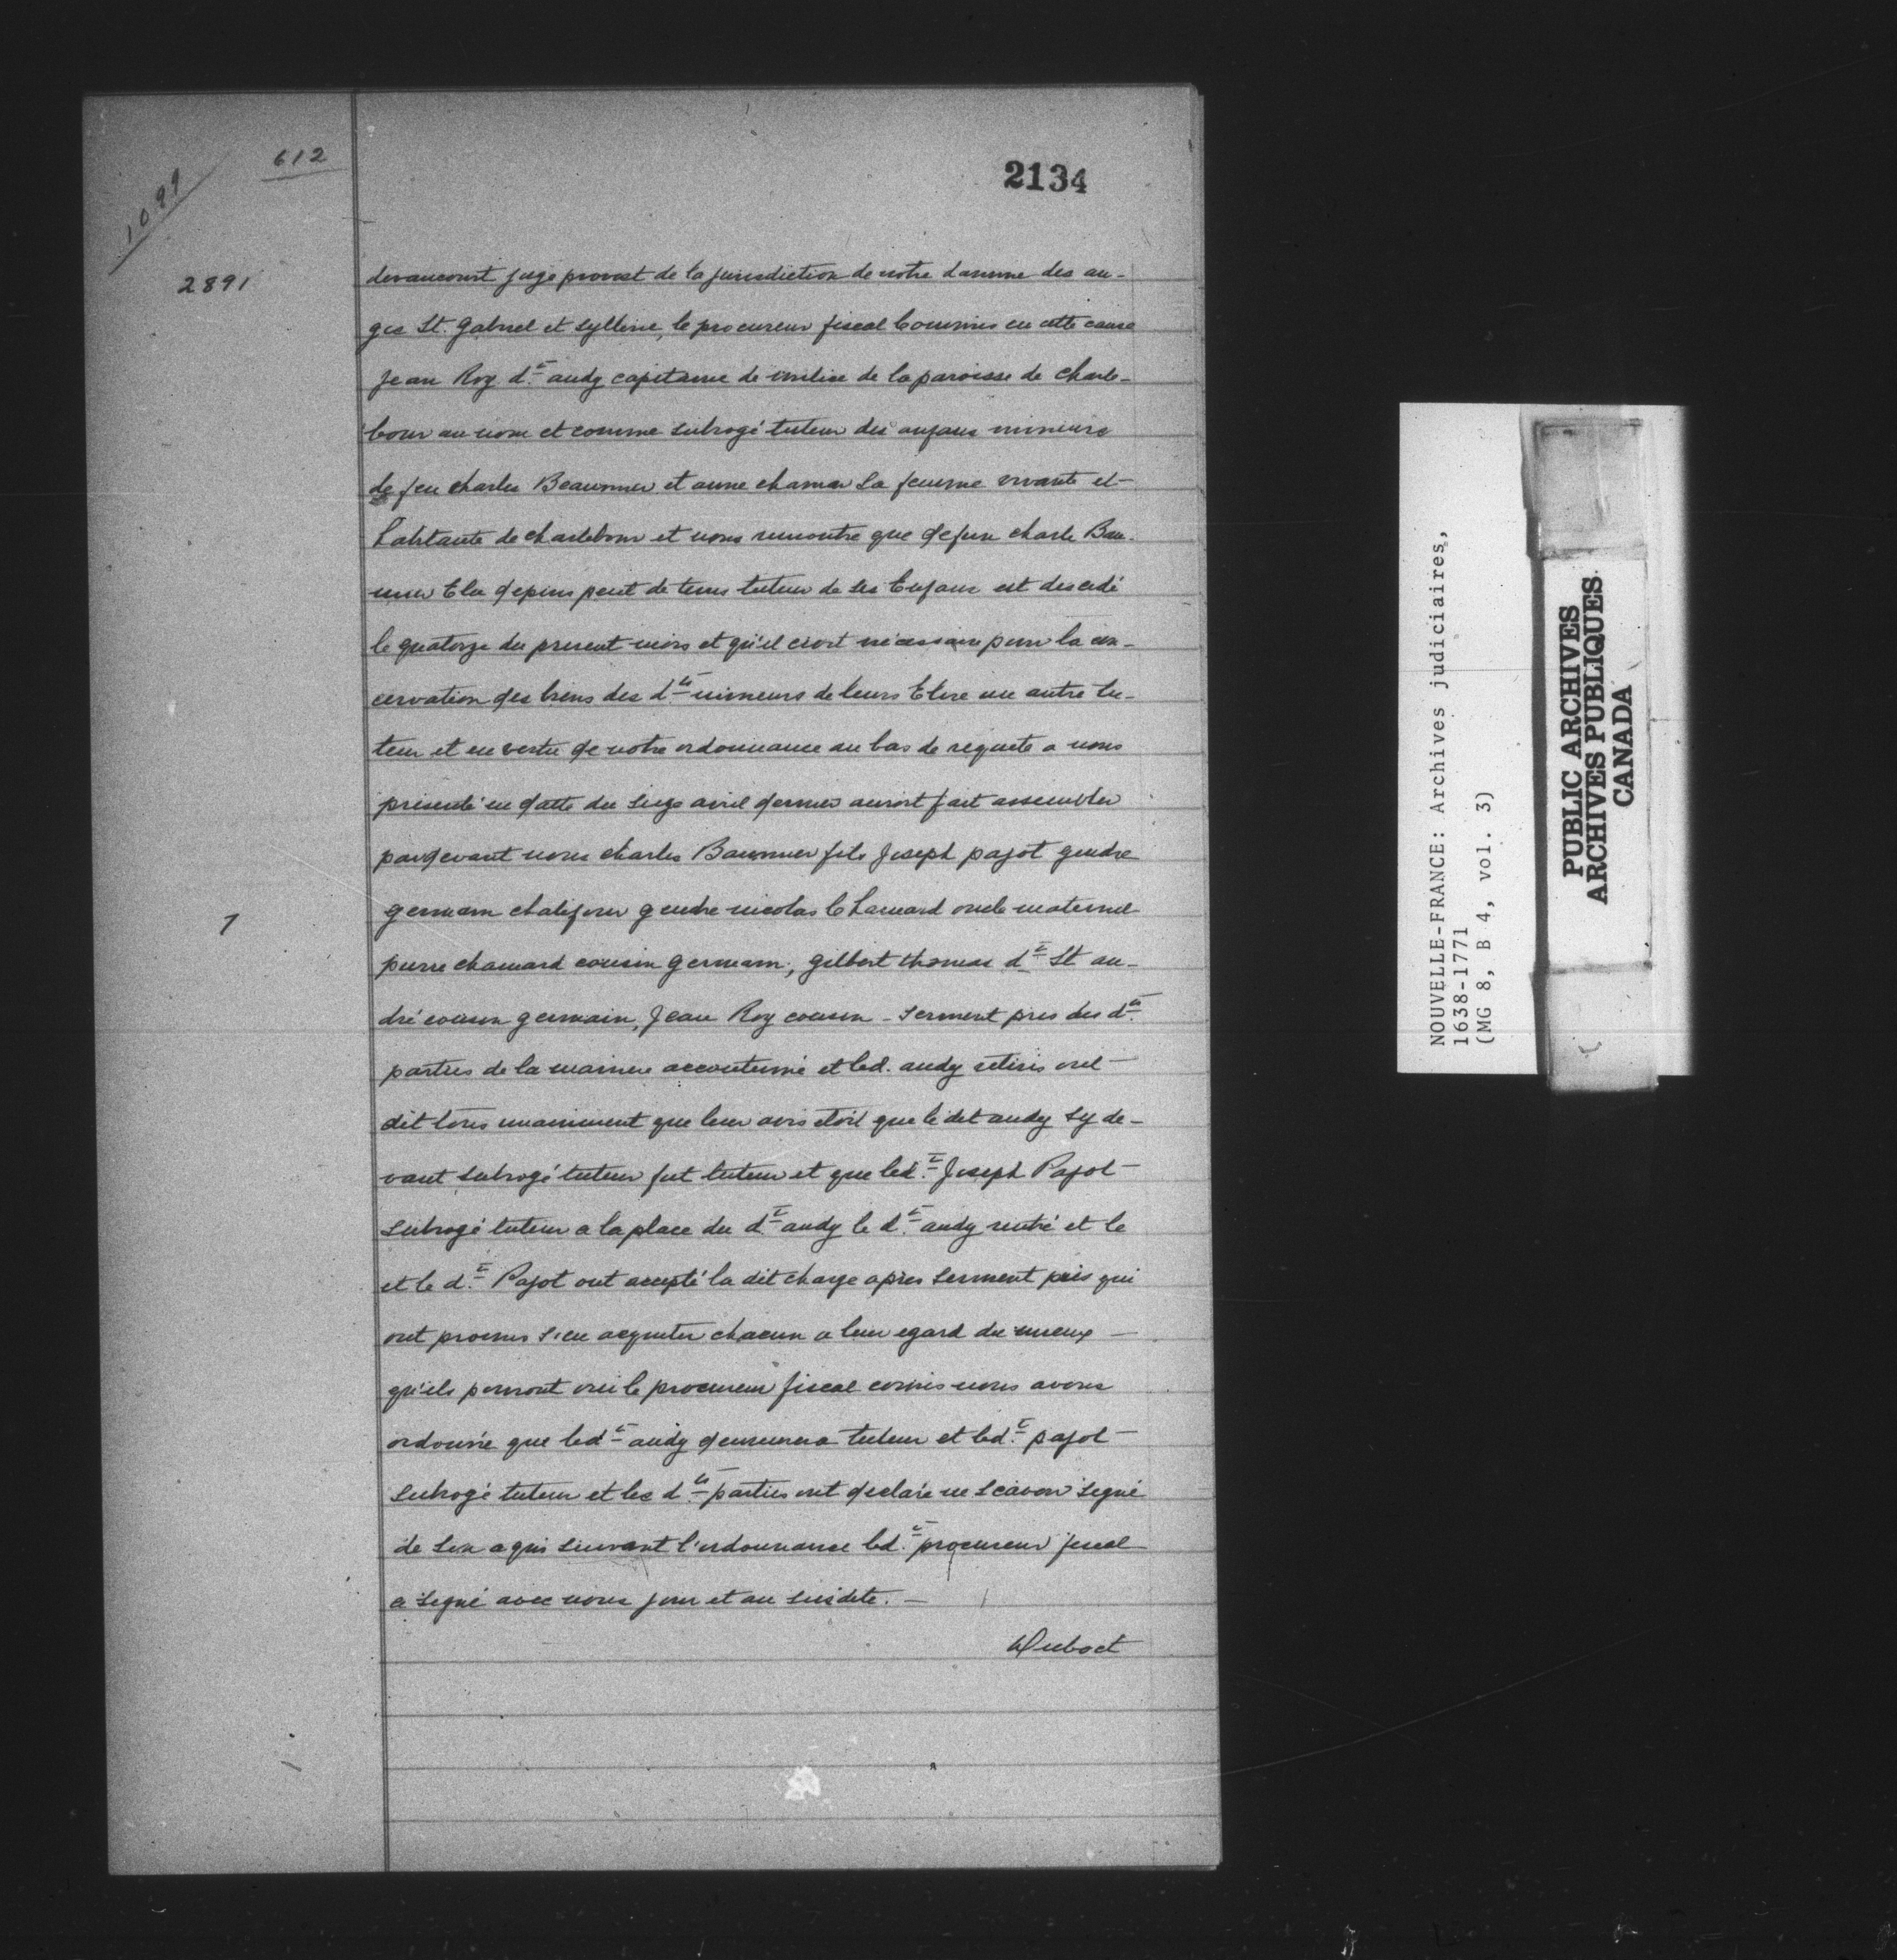 612
1099
2134
2891
devancourt juge provost de la jurisdiction de notre damme des an-
ges St. Gabriel et Syllerie, le procureur fiscal Commis en cette cause
Jean Roy d.t audy capitaine de milice de la paroisse de charle-
bour au nom et comme subrogé tuteur des anfans mineurs
de feu charles Beaumier et anne chamar sa femme vivante et
habitante de charlebour et nous remontre que defun charle Bau-
mier Elu depuis peut de tems tuteur de ses Enfans est descedé
le quatorze du present mois et qu'il croit nécessaire pour la con-
cervation des biens des d.ts mineurs de leurs Elire un autre tu-
teur et en vertu de notre ordonnance au bas de requete a nous
présenté en datte du seize avril dernier auroit fait assembler
pardevant nous charles Baumier fils Joseph pajot gendre
1
germain chalifour gendre nicolas le hamard oncle maternel
pierre chamard cousin germain, gilbert thomas d.t St an-
dré cousin germain, Jean Roy cousin - Serment pris des d.ts
parties de la maniere accoutumé et led. audy retirés ont
dit tous unanimement que leur avis étoit que le dit audy sy de-
vant subrogé tuteur fut tuteur et que led.t Joseph Pajot
subrogé tuteur a la place du d.t audy le d.t audy rentré et le
et le d.t Pajot ont accepté la dit charge apres serment pris qui
ont promis s'en acquiter chacun a leur egard du mieux
qu'ils pourront oui le procureur fiscal comis nous avons
ordonné que led.t audy demeurera tuteur et led.t pajot
subrogé tuteur et les d.ts parties ont declaré ne scavoir signé
de son a quis suivant l'ordonnance led.t procureur fiscal
a signé avec nous jour et an susdite. -
Duboct
NOUVELLE-FRANCE: Archives judiciaires,
1638-1771
(MG 8, B 4, vol. 3)
PUBLIC ARCHIVES
ARCHIVES PUBLIQUES
CANADA